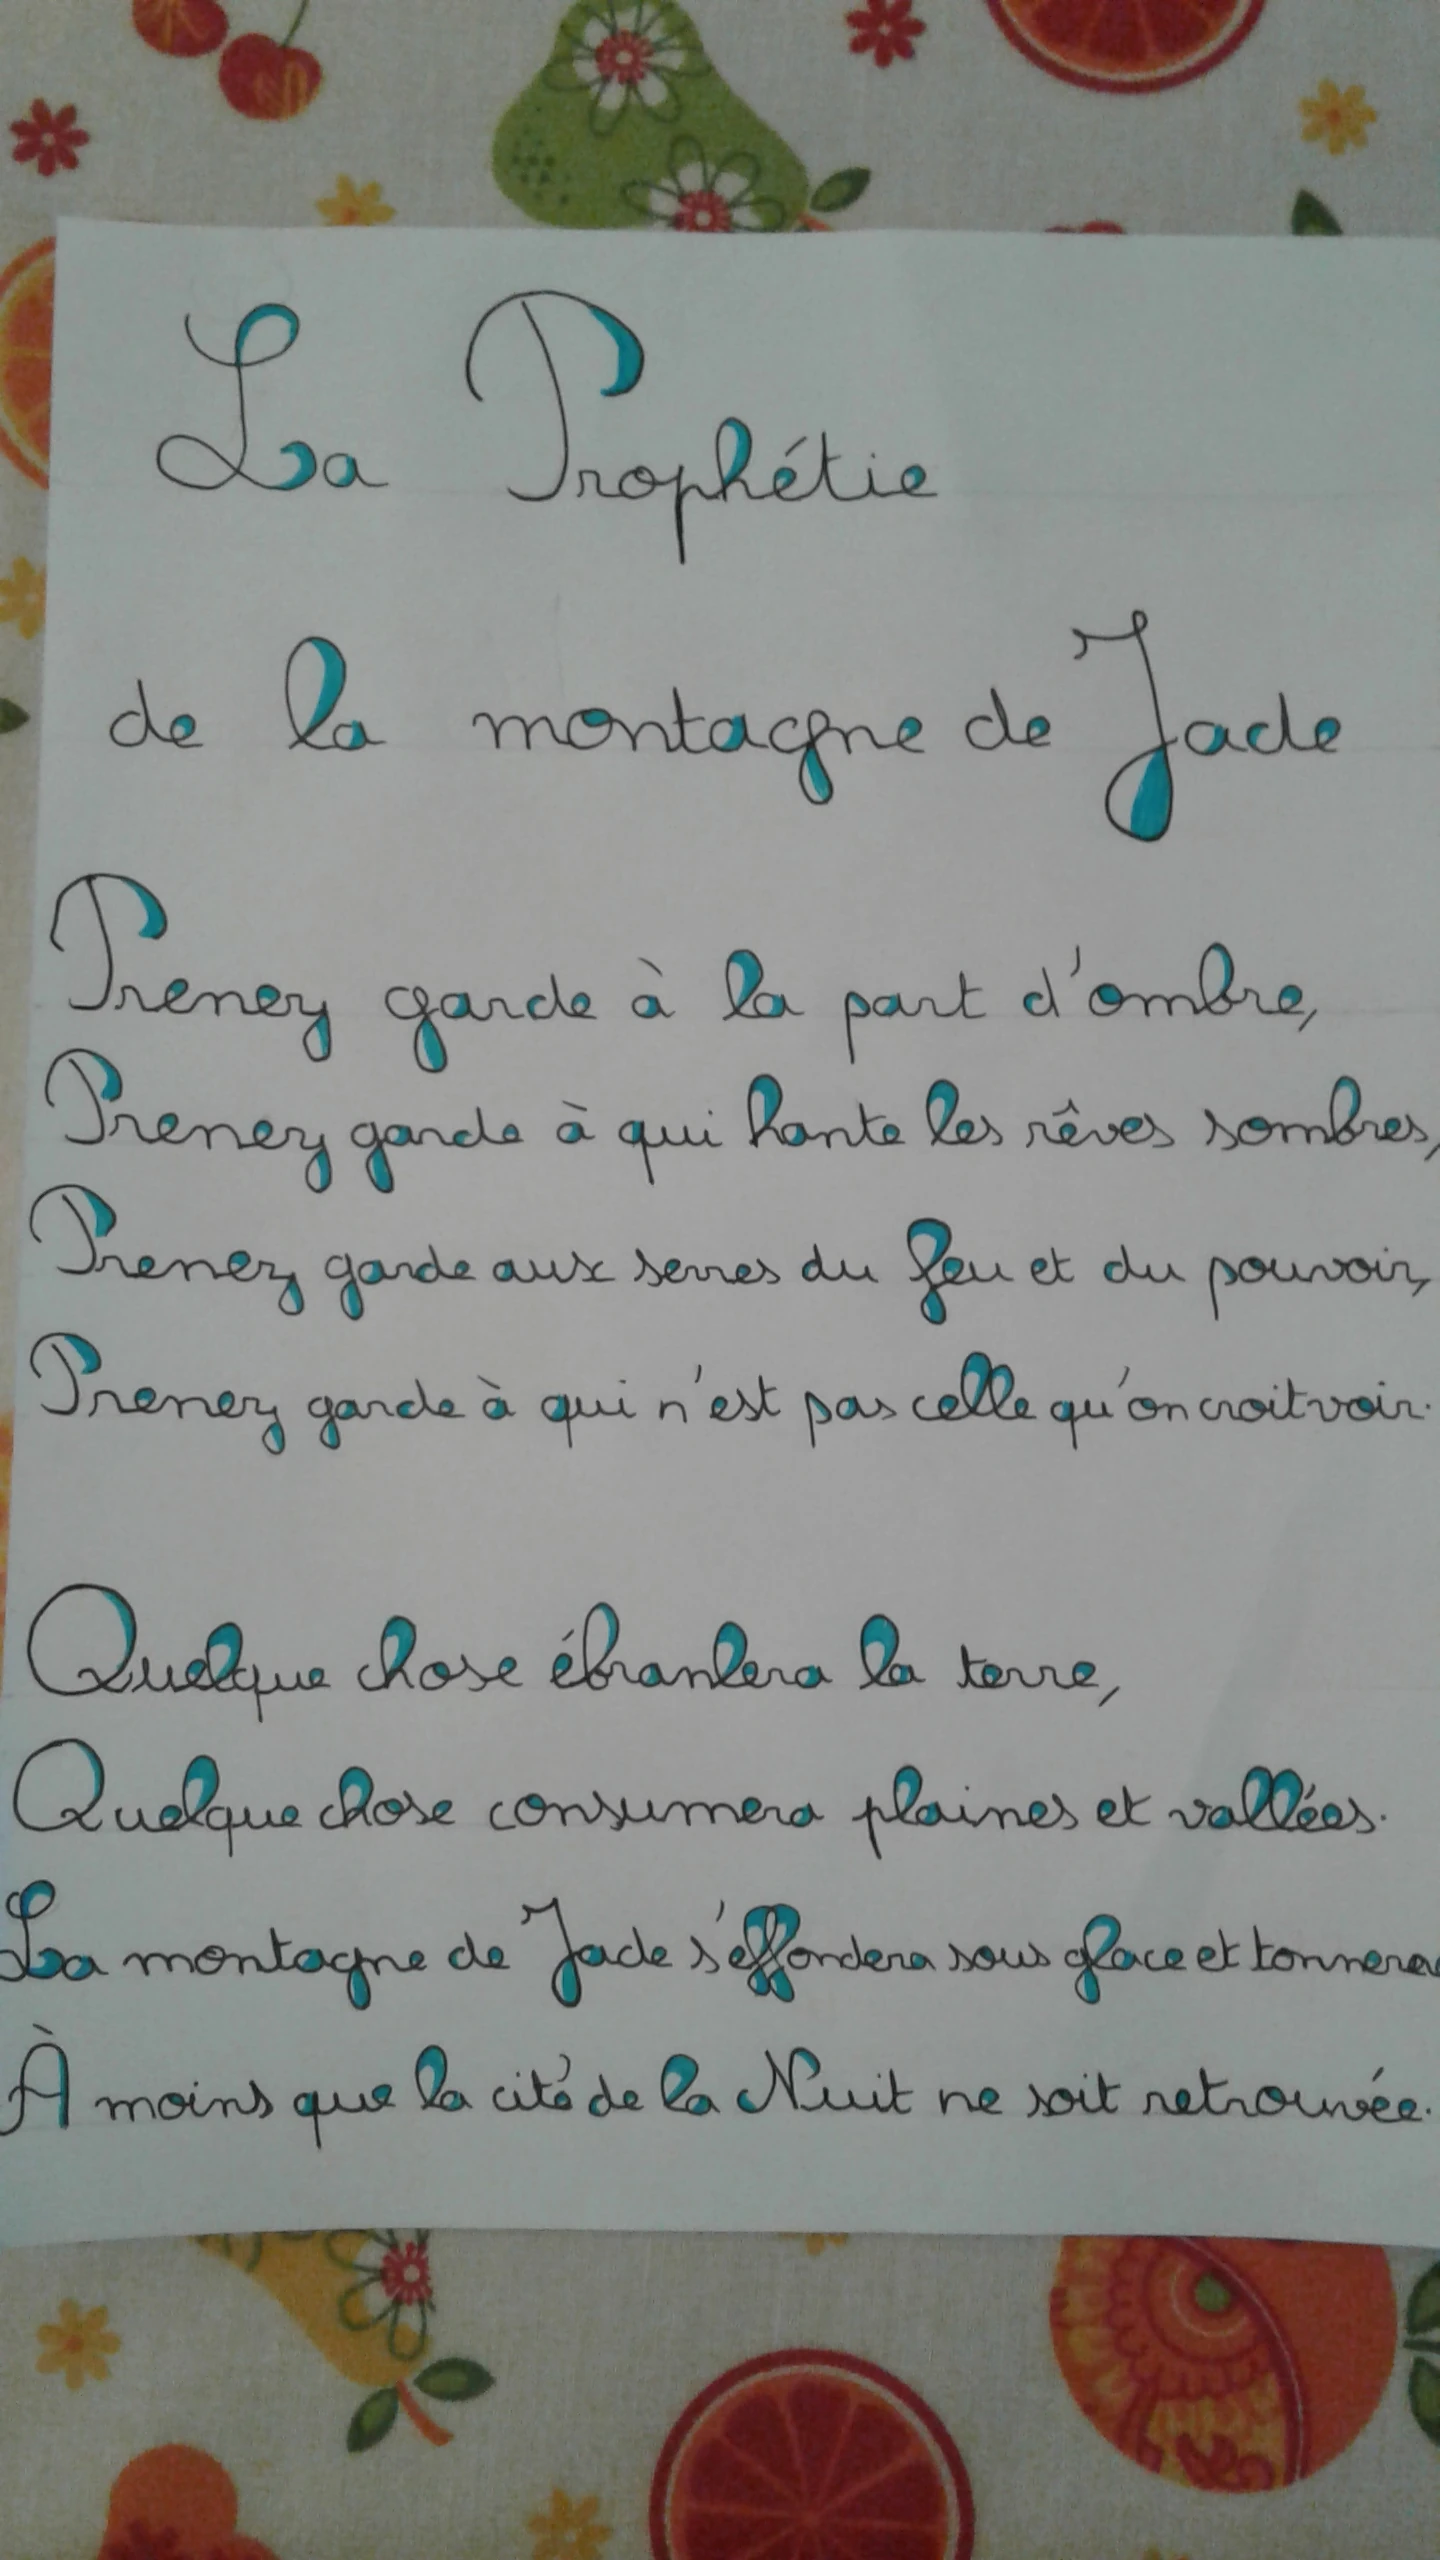 La Prophétie
de la montagne de Jade
Prenez garde à la part d'ombre,
Prenez garde à qui hante les rêves sombres,
Prenez garde aux serres du feu et du pouvoir,
Prenez garde à qui n'est pas celle qu'on croit voir.
Quelque chose ébranlera la terre,
Quelque chose consumera plaines et vallées.
La montagne de Jade s'effondera sous glace et tonnerre
À moins que la cité de la Nuit ne soit retrouvée.